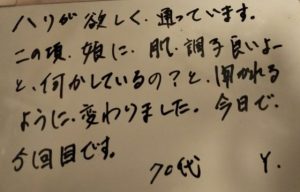 ハリが欲しく、通っています。
この項、娘に、肌、調子良いよー
と、何かしているの?と、聞かれる
ように、変わりました。今日で、
5回目です。
70代 Y.